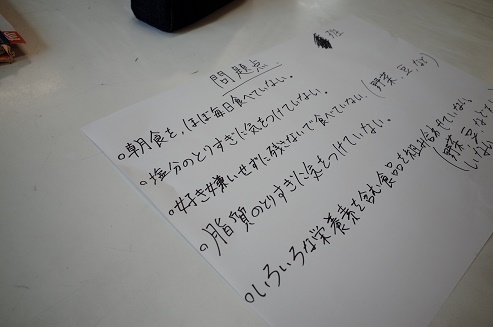 班
問題点
○朝食を、ほぼ毎日食べていない。
○塩分のとりすぎに気をつけていない。
○好き嫌いせずに残さないで食べていない。(野菜、豆、など)
○脂質のとりすぎに気をつけていない。
○いろいろな栄養素を含む食品を組み合わせていない。
(野菜、豆など